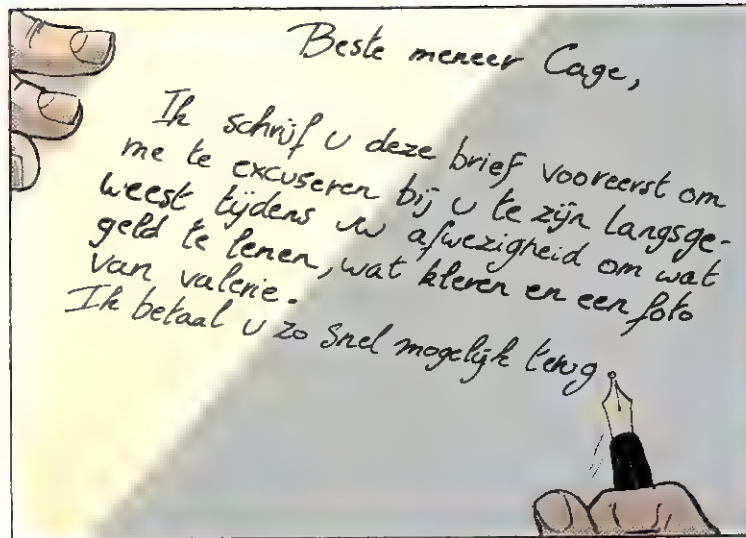 Beste meneer Cage,
Ik schrijf u deze brief vooreerst om
me te excuseren bij u te zijn langsge-
weest tijdens uw afwezigheid om wat
geld te lenen, wat kleren en een foto
van valerie.
Ik betaal u zo snel mogelijk terug